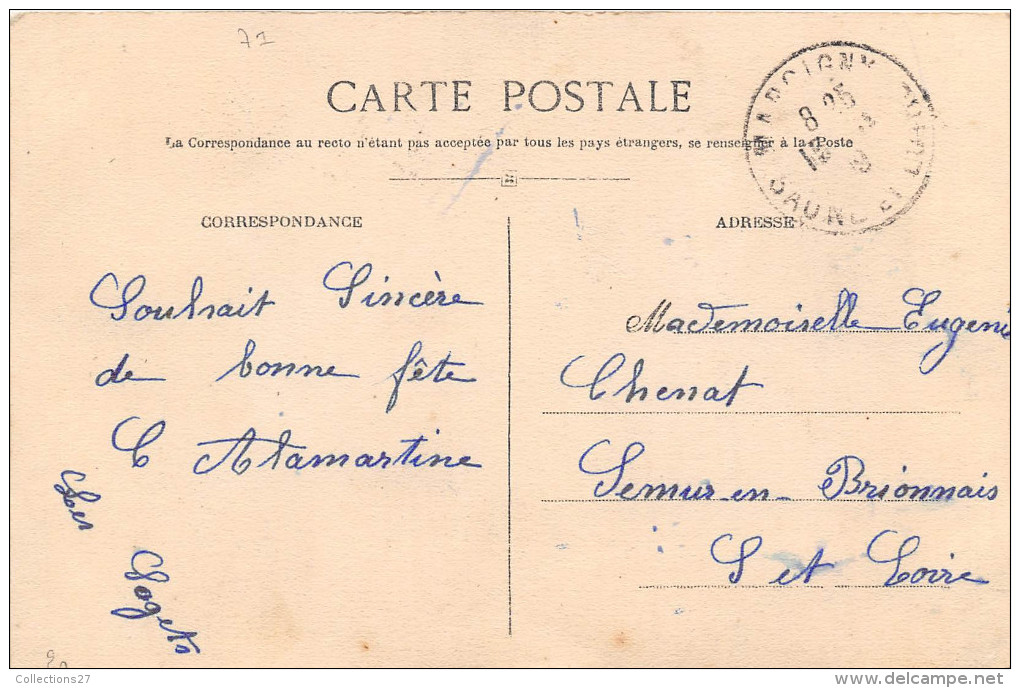 71
CARTE POSTALE
La Correspondance au recto n'étant pas acceptée par tous les pays étrangers, se renseigner à la Poste
MARCIGNY
8 25
SAONE ET LOIRE
CORRESPONDANCE
Souhait Sincère
de bonne fête
C Alamartine
Les
Sogets
ADRESSE
Mademoiselle Eugenie
Chenat
Semur-en-Brionnais
S et Loire
Collections27
www.delcampe.net